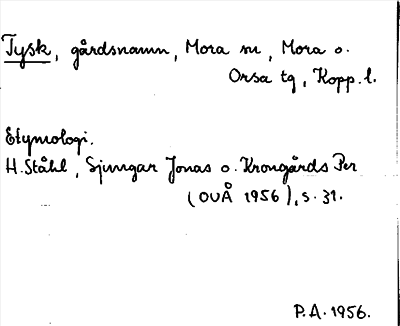 Tysk, gårdsnamn, Mora sn, Mora o.
Orsa tg, Kopp. l.
Etymologi.
H. Ståhl, Sjungar Jonas o. Krongårds Per
(OUÅ 1956), s. 31.
P.A. 1956.